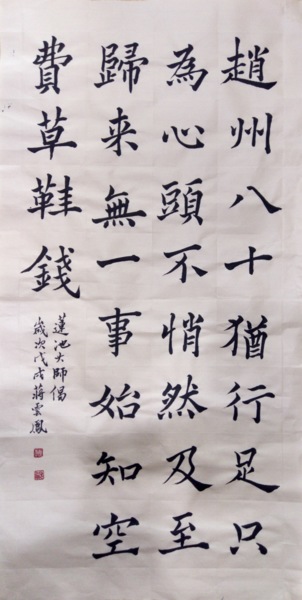 趙州八十猶行足只
為心頭不悄然及至
歸来無一事始知空
費草鞋錢
蓮池大師偈
歲次戊戌蔣雲鳳